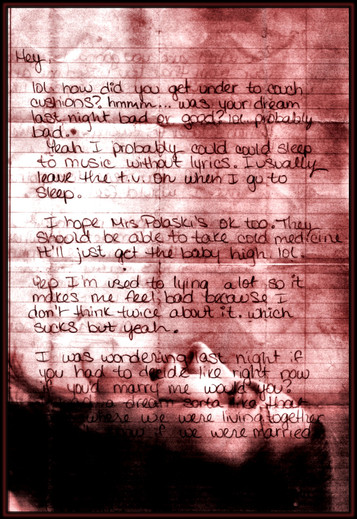 Hey.
lol how did you get under to couch
cushions? hmmm... was your dream
last night bad or good? lol. probably
bad.
Yeah I probably could could sleep
to music without lyrics. I usually
leave the t.v. on when I go to
sleep.
I hope Mrs. Polaski's ok too. They
should be able to take cold medicine.
It'll just get the baby high lol.
Yep I'm used to lying alot so it
makes me feel bad because I
don't think twice about it. which
sucks but yeah.
I was wondering last night if
you had to decide like right now
if you'd marry me would you?
a dream sorta like that
where we were living together
if we were married